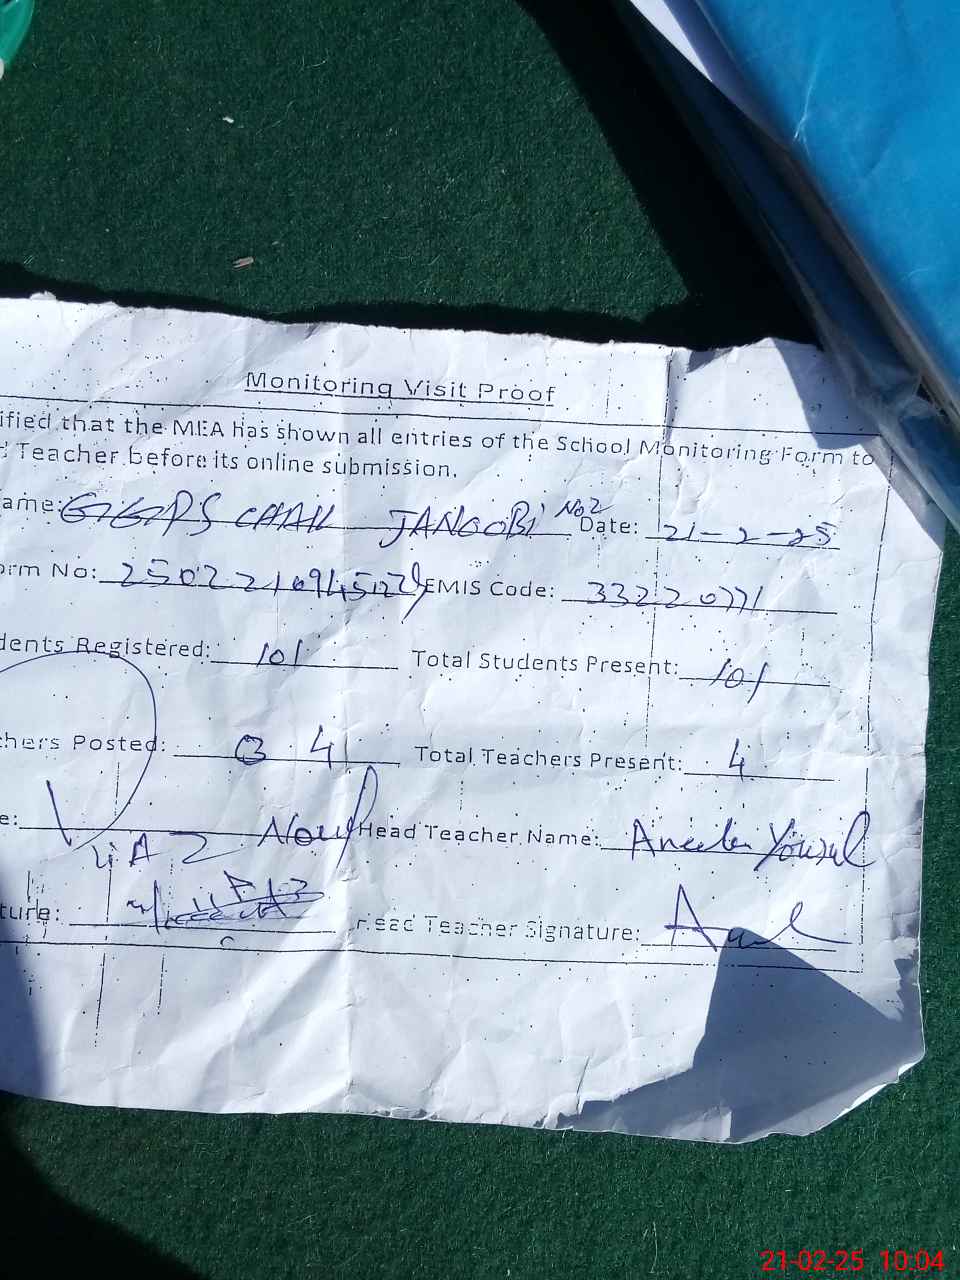 Monitoring Visit Proof
ified that the MEA has shown all entries of the School Monitoring Form to
d Teacher before its online submission.
ame: GGPS CHAK JANOOBI No2 Date: 21-2-25
orm No: EMIS Code: 33220771
dents Registered: 101 Total Students Present: 101
chers Posted: 4 Total Teachers Present: 4
e: Head Teacher Name:
ture: Head Teacher Signature:
21-02-25 10:04